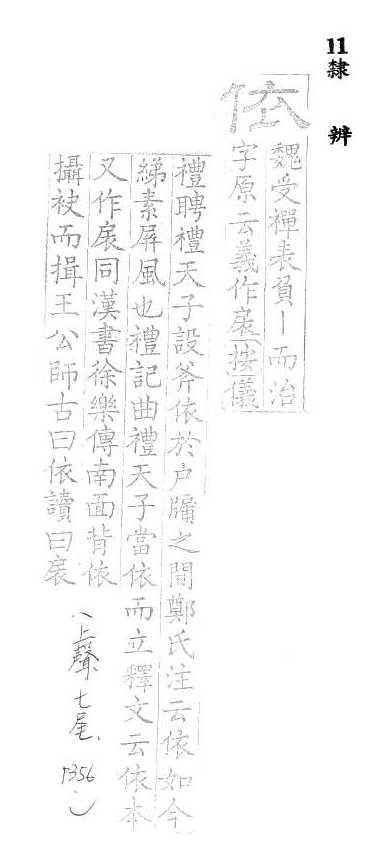 11隸辨
依
魏受禪表負丨而治
字原云義作扆按儀
禮聘禮天子設斧依於户牖之間鄭氏注云依如今
綈素屏風也禮記曲禮天子當依而立釋文云依本
又作扆同漢書徐樂傳南面背依
攝袂而揖王公師古曰依讀曰扆
(上聲.七尾. P356.)